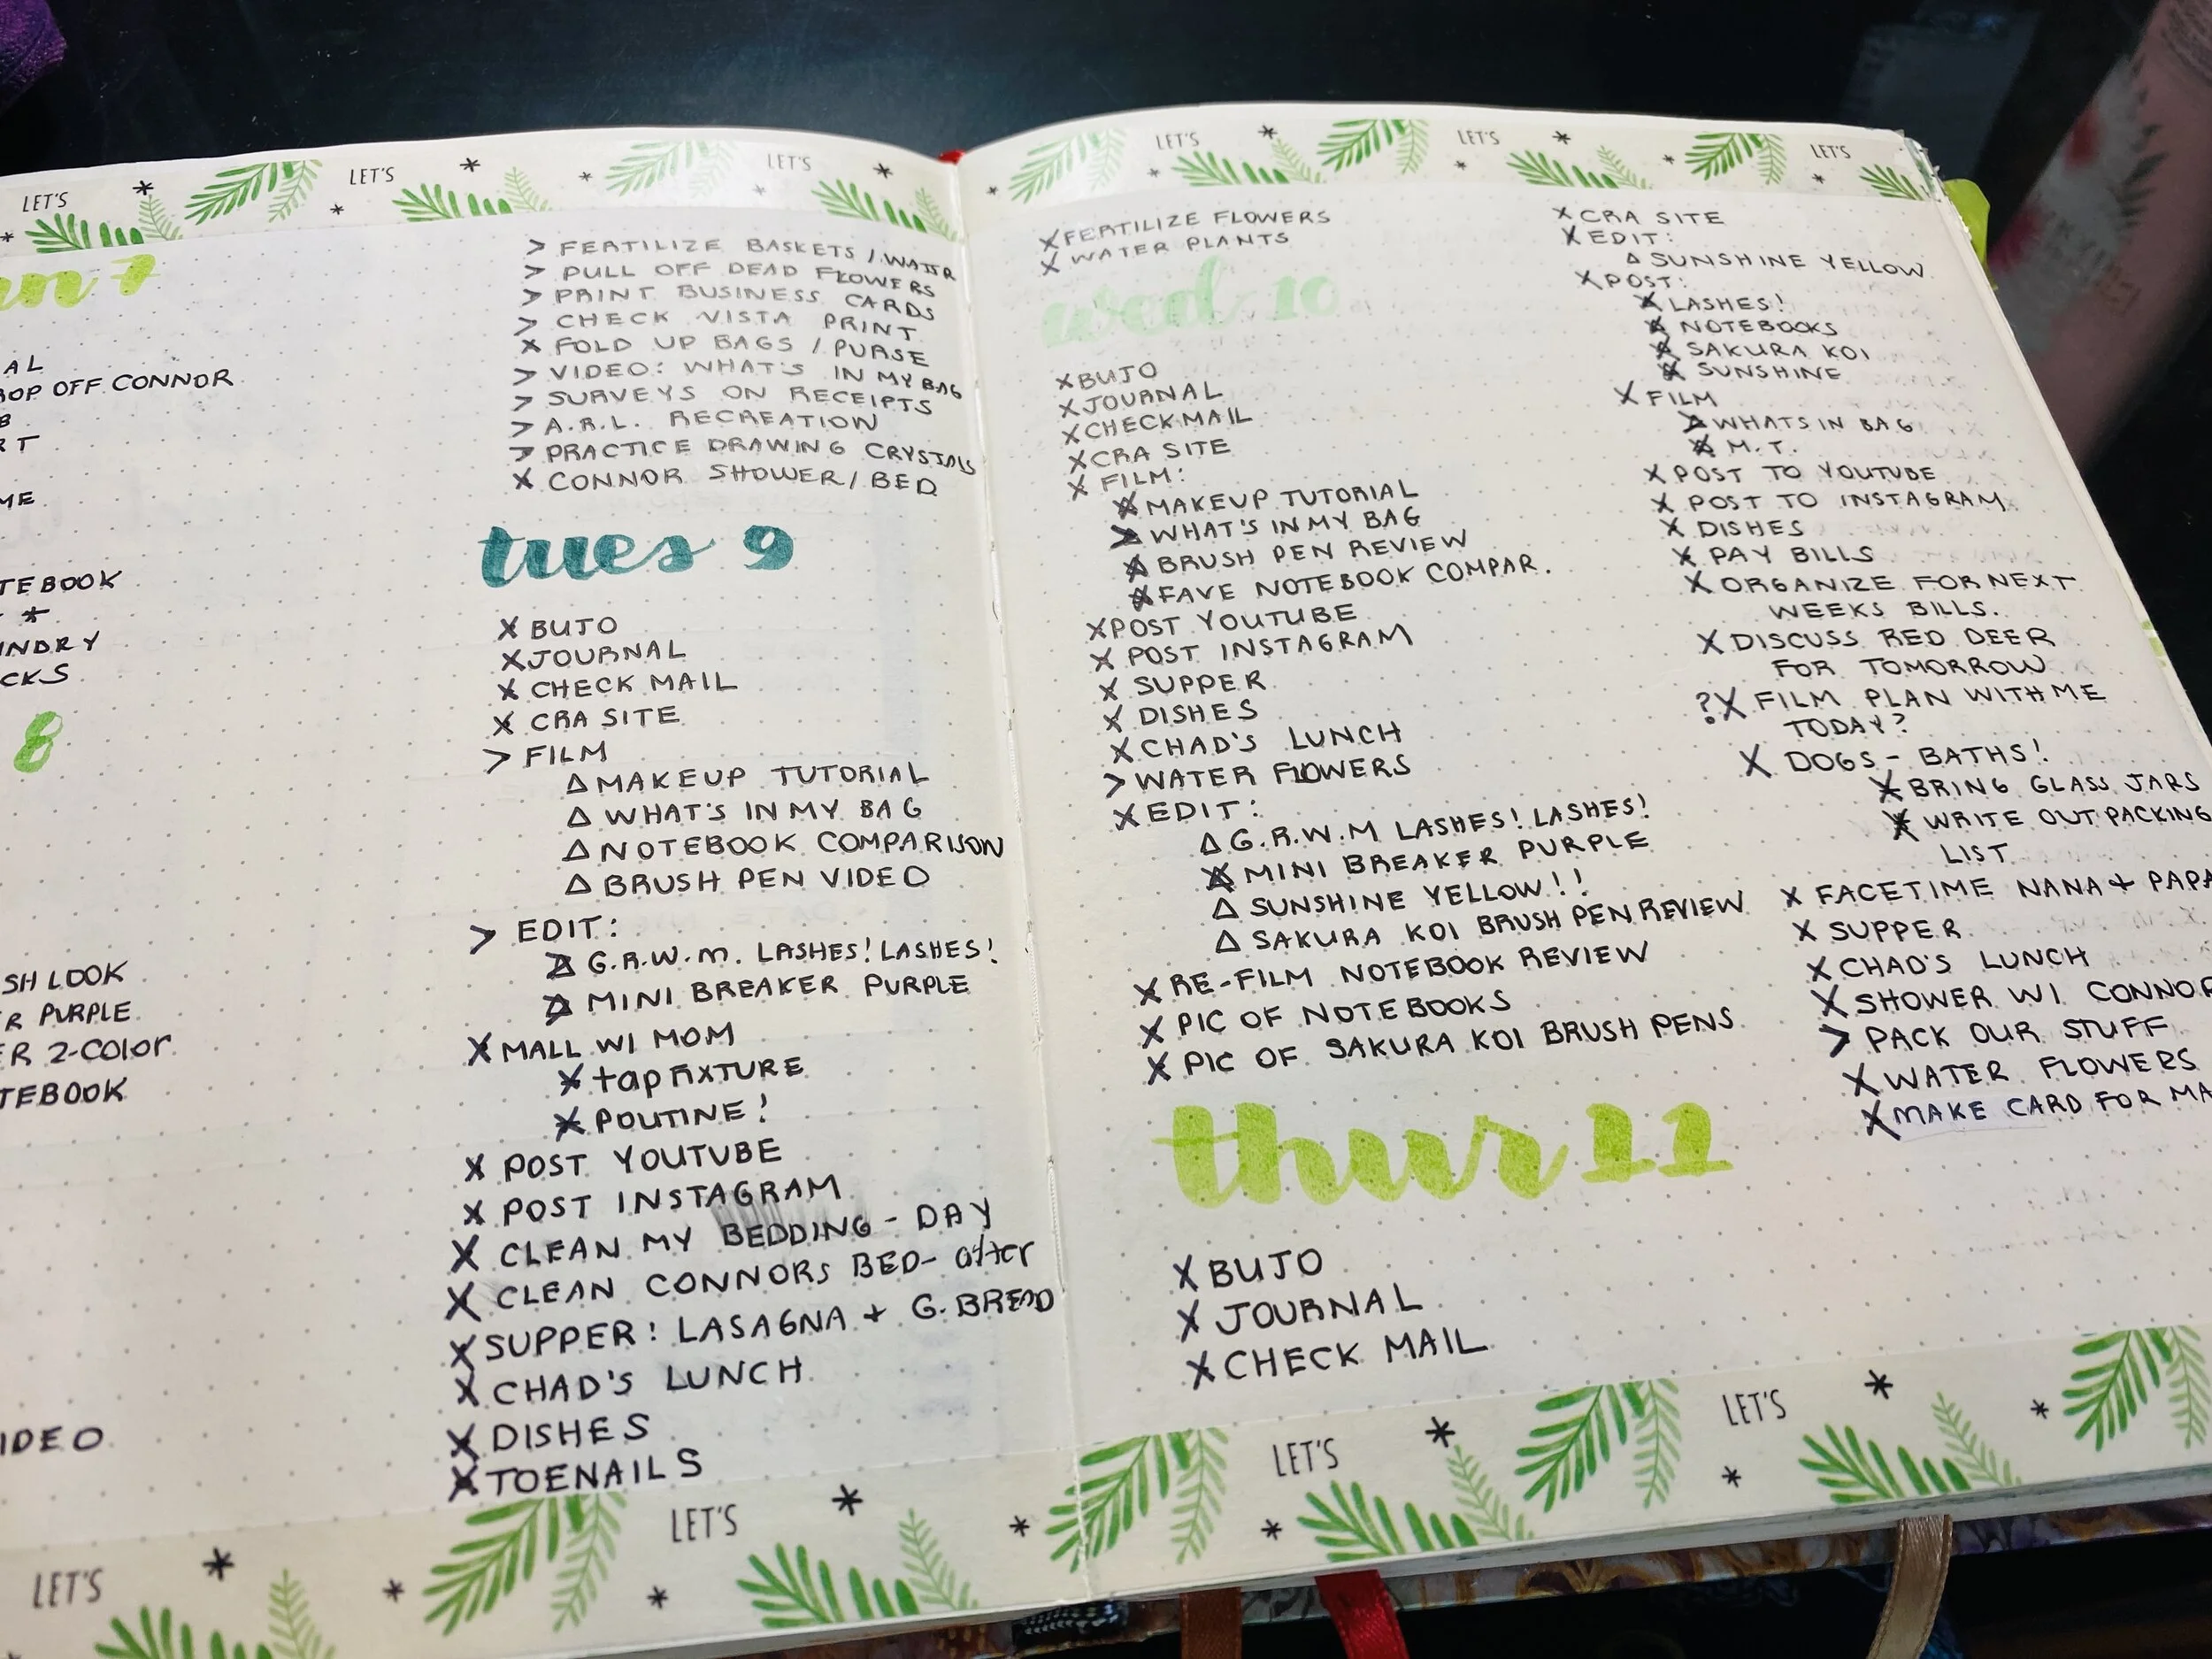 LET'S LET'S LET'S LET'S LET'S LET'S
7
AL
OP OFF CONNOR
B
RT
ME
TEBOOK
*
NDRY
CKS
8
SH LOOK
R PURPLE
ER 2-COLOR
TEBOOK
IDEO
> FERTILIZE BASKETS / WATER
> PULL OFF DEAD FLOWERS
> PRINT BUSINESS CARDS
> CHECK VISTA PRINT
X FOLD UP BAGS / PURSE
> VIDEO: WHAT'S IN MY BAG
> SURVEYS ON RECEIPTS
> A.R.L. RECREATION
> PRACTICE DRAWING CRYSTALS
X CONNOR SHOWER / BED
tues 9
X BUJO
X JOURNAL
X CHECK MAIL
X CRA SITE
> FILM
△ MAKEUP TUTORIAL
△ WHAT'S IN MY BAG
△ NOTEBOOK COMPARISON
△ BRUSH PEN VIDEO
> EDIT:
△ G.R.W.M. LASHES! LASHES!
△ MINI BREAKER PURPLE
X MALL W/ MOM
X tap FIXTURE
X POUTINE!
X POST YOUTUBE
X POST INSTAGRAM
X CLEAN MY BEDDING - DAY
X CLEAN CONNORS BED - after
X SUPPER: LASAGNA + G. BREAD
X CHAD'S LUNCH
X DISHES
X TOENAILS
X FERTILIZE FLOWERS
X WATER PLANTS
wed 10
X BUJO
X JOURNAL
X CHECK MAIL
X CRA SITE
X FILM:
X MAKEUP TUTORIAL
> WHAT'S IN MY BAG
X BRUSH PEN REVIEW
X FAVE NOTEBOOK COMPAR.
X POST YOUTUBE
X POST INSTAGRAM
X SUPPER
X DISHES
X CHAD'S LUNCH
> WATER FLOWERS
X EDIT:
△ G.R.W.M LASHES! LASHES!
X MINI BREAKER PURPLE
△ SUNSHINE YELLOW!!
△ SAKURA KOI BRUSH PEN REVIEW
X RE-FILM NOTEBOOK REVIEW
X PIC OF NOTEBOOKS
X PIC OF SAKURA KOI BRUSH PENS
thur 11
X BUJO
X JOURNAL
X CHECK MAIL
X CRA SITE
X EDIT:
△ SUNSHINE YELLOW
X POST:
X LASHES!
X NOTEBOOKS
X SAKURA KOI
X SUNSHINE
X FILM
> WHATS IN BAG
X M.T.
X POST TO YOUTUBE
X POST TO INSTAGRAM
X DISHES
X PAY BILLS
X ORGANIZE FOR NEXT
WEEKS BILLS.
X DISCUSS RED DEER
FOR TOMORROW
?X FILM PLAN WITH ME
TODAY?
X DOGS - BATHS!
X BRING GLASS JARS
X WRITE OUT PACKING
LIST
X FACETIME NANA + PAPA
X SUPPER
X CHAD'S LUNCH
X SHOWER W/ CONNOR
> PACK OUR STUFF
X WATER FLOWERS
X MAKE CARD FOR MA
LET'S LET'S LET'S LET'S